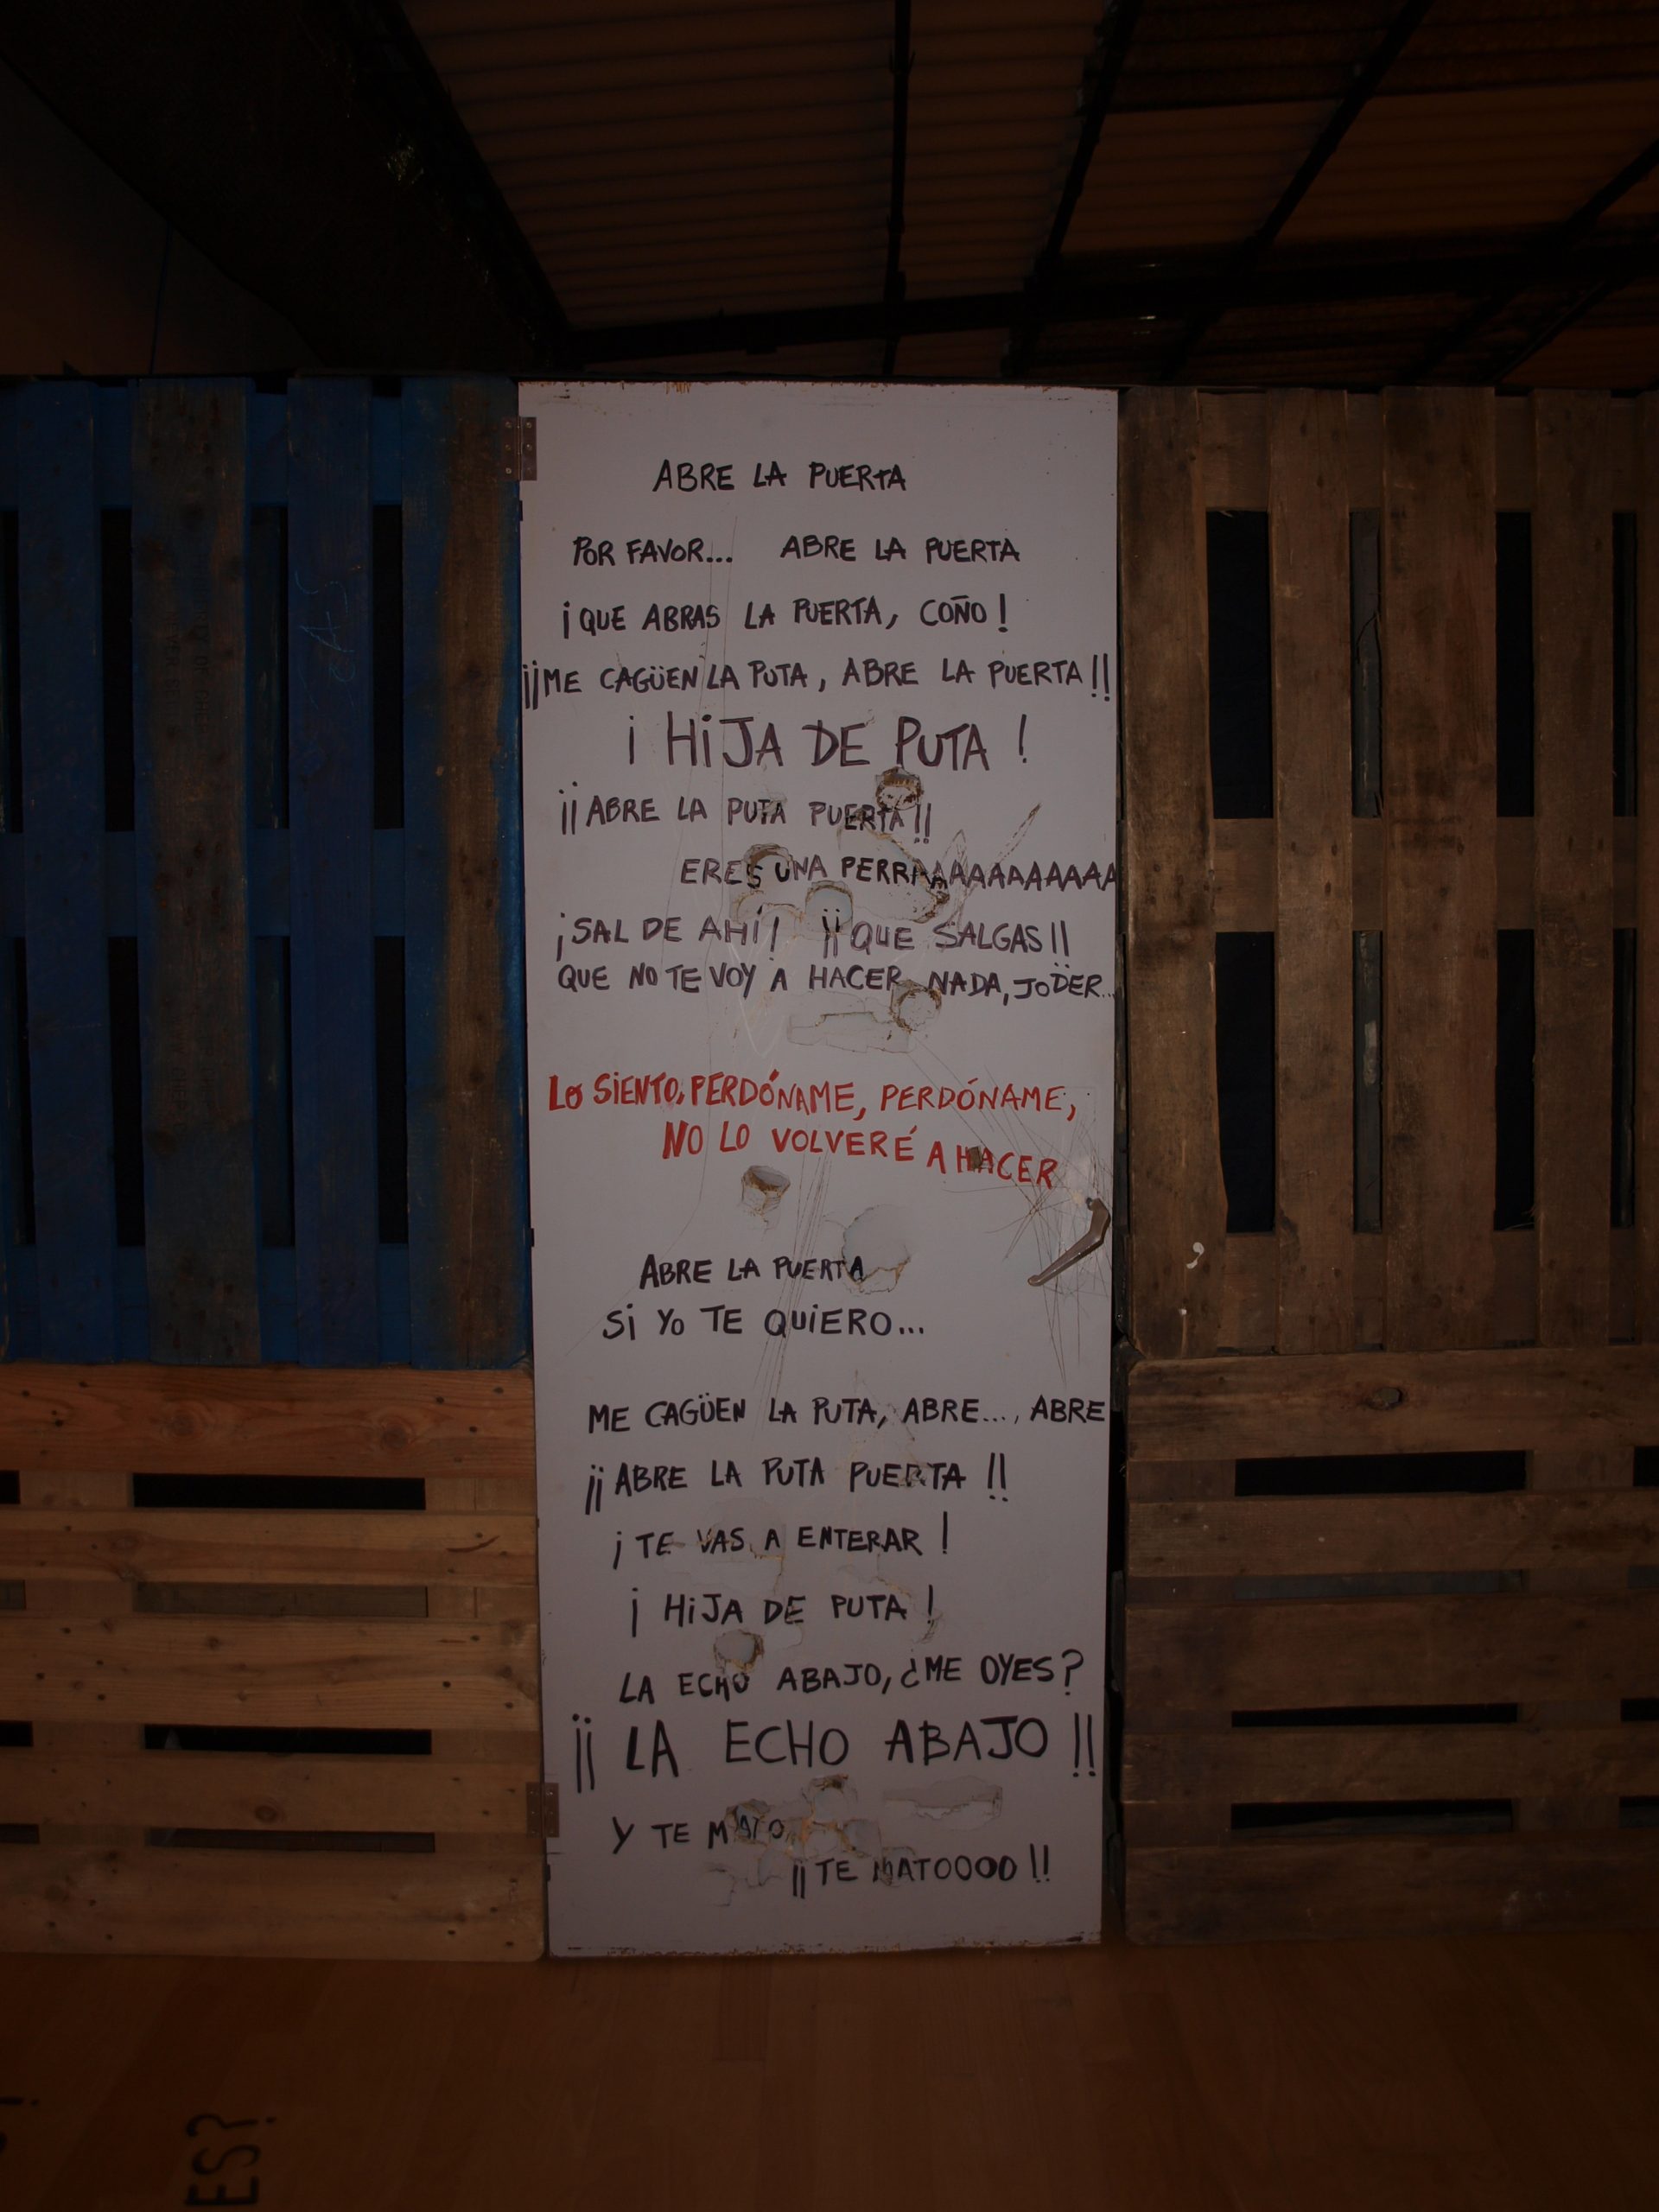 ABRE LA PUERTA
POR FAVOR... ABRE LA PUERTA
¡QUE ABRAS LA PUERTA, COÑO!
¡¡ME CAGÜEN LA PUTA, ABRE LA PUERTA!!
¡HIJA DE PUTA!
¡¡ABRE LA PUTA PUERTA!!
ERES UNA PERRAAAAAAAAAAAA
¡SAL DE AHÍ! ¡¡QUE SALGAS!!
QUE NO TE VOY A HACER NADA, JODER...
LO SIENTO, PERDÓNAME, PERDÓNAME,
NO LO VOLVERÉ A HACER
ABRE LA PUERTA
SI YO TE QUIERO...
ME CAGÜEN LA PUTA, ABRE..., ABRE
¡¡ABRE LA PUTA PUERTA!!
¡TE VAS A ENTERAR!
¡HIJA DE PUTA!
LA ECHO ABAJO, ¿ME OYES?
¡¡LA ECHO ABAJO!!
Y TE MATO,
¡¡TE MATOOOO!!
ES?